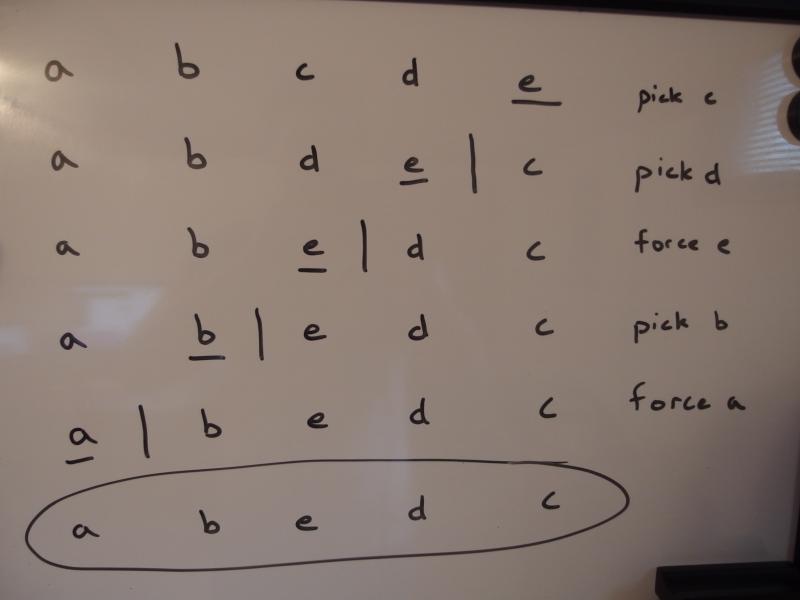 a b c d e pick c
a b d e | c pick d
a b e | d c force e
a b | e d c pick b
a | b e d c force a
a b e d c